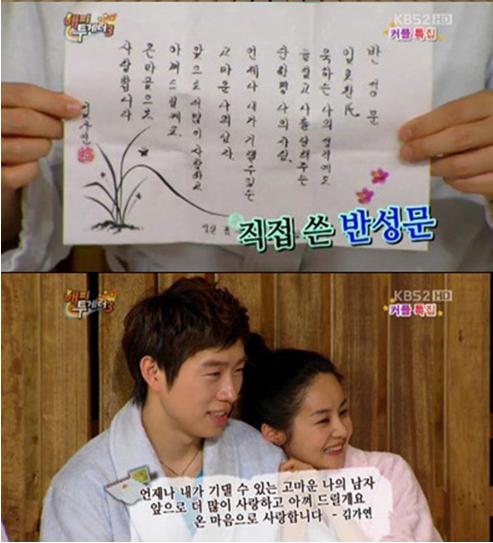 해피
투게더3
KBS2 HD
커플 특집
반성문
임요환 氏
욱하는 나의 성격에도
단 한명 나의 사람
언제나 내가 기댈 수 있는
고마운 나의 남자
앞으로 더 많이 사랑하고
아껴 드릴게요
온 마음으로
사랑합니다
직접 쓴 반성문
해피
투게더3
KBS2 HD
커플 특집
언제나 내가 기댈 수 있는 고마운 나의 남자
앞으로 더 많이 사랑하고 아껴 드릴게요
온 마음으로 사랑합니다 - 김가연